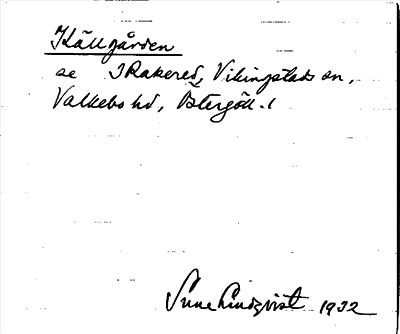 Källgården
se Rakered, Vikingstads sn,
Valkebo hd, Östergötl.
Sune Lindqvist 1932